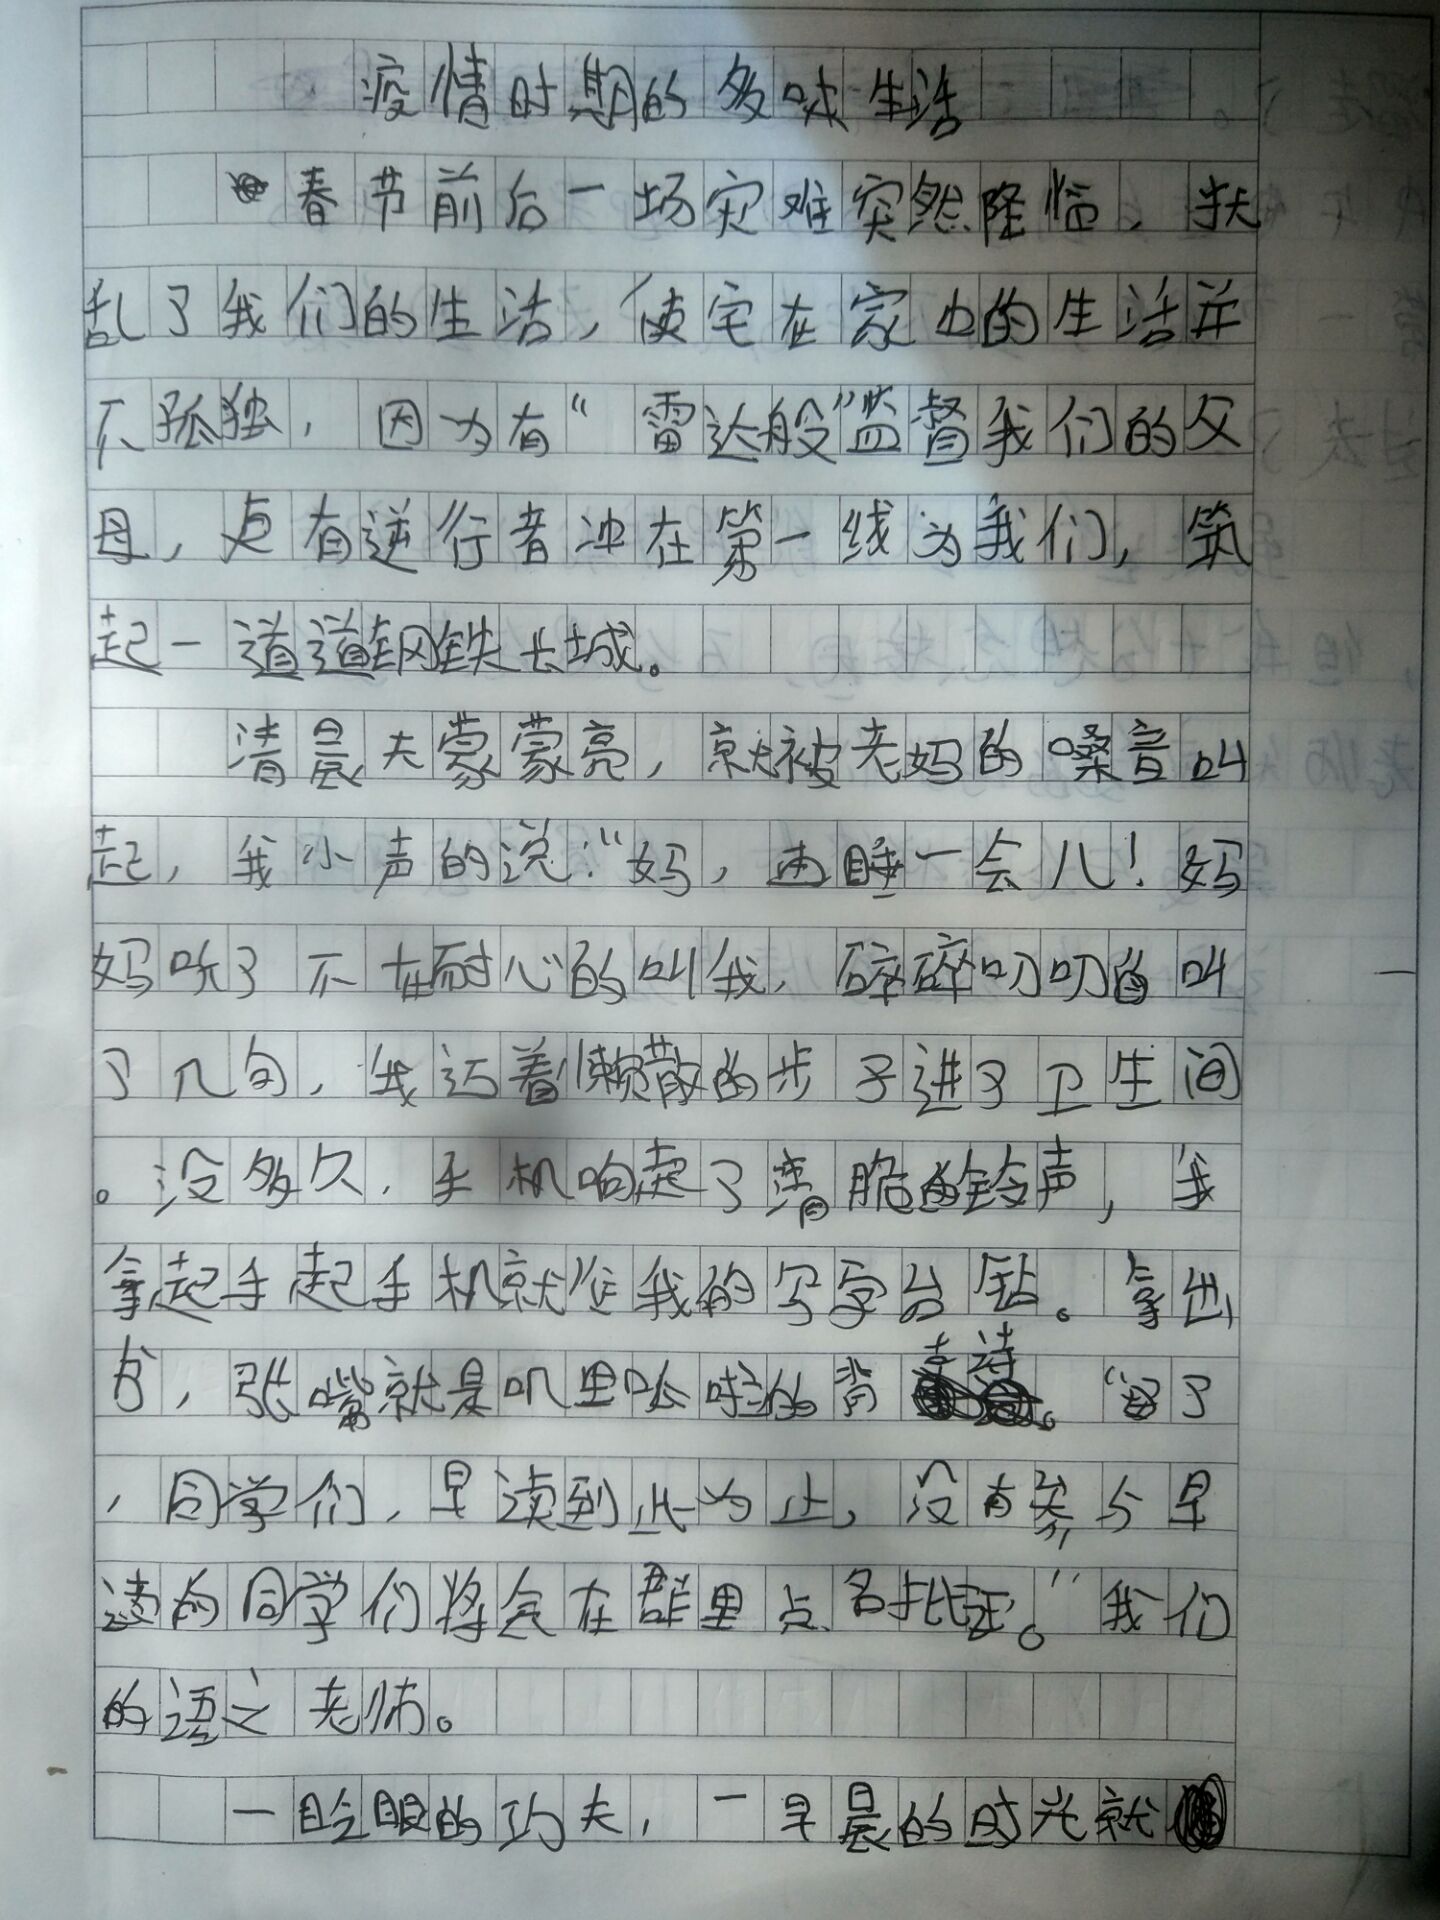 疫情时期的多味生活
春节前后一场灾难突然降临，扰
乱了我们的生活，使宅在家中的生活并
不孤独，因为有“雷达般”监督我们的父
母，更有逆行者冲在第一线为我们，筑
起一道道钢铁长城。
清晨天蒙蒙亮，就被老妈的嗓音叫
起，我小声的说：“妈，再睡一会儿！妈
妈听了不在耐心的叫我，碎碎叨叨的叫
了几句，我迈着懒散的步子进了卫生间
。没多久，手机响起了清脆的铃声，我
拿起手起手机就往我的写字台钻。拿出
书，张嘴就是叽里呱啦的背古诗。“好了
，同学们，早读到此为止，没有参与早
读的同学们将会在群里点名批评。”我们
的语文老师。
一眨眼的功夫，一早晨的时光就